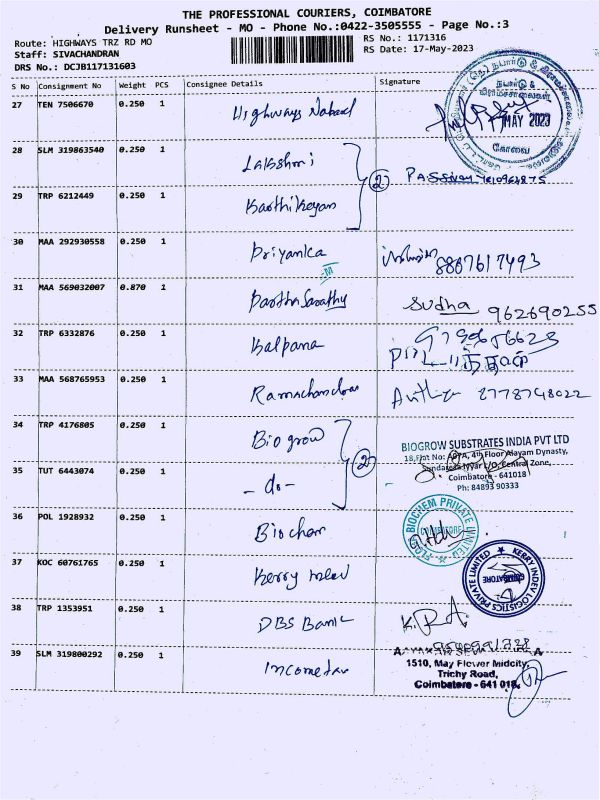 THE PROFESSIONAL COURIERS, COIMBATORE
Delivery Runsheet - MO - Phone No.:0422-3505555 - Page No.:3
Route: HIGHWAYS TRZ RD MO
RS No.: 1171316
Staff: SIVACHANDRAN
RS Date: 17-May-2023
DRS No.: DCJB117131603
S No Consignment No Weight PCS Consignee Details Signature
27 TEN 7506670 0.250 1 Highways
MAY 2023
கோவை
28 SLM 319863540 0.250 1 Lakshmi
29 TRP 6212449 0.250 1 Karthikeyan
2
30 MAA 292930558 0.250 1 Priyanka 8887617493
31 MAA 569032007 0.870 1 Parthasarathy Sudha 962690255
32 TRP 6332876 0.250 1 Kalpana
33 MAA 568765953 0.250 1 Ramachandran
34 TRP 4176805 0.250 1 Biogrow
BIOGROW SUBSTRATES INDIA PVT LTD
18, Flat No: 4th Floor Alayam Dynasty,
Central Zone,
Coimbatore - 641018
Ph: 84893 90333
35 TUT 6443074 0.250 1 - do -
2
36 POL 1928932 0.250 1 Biochem
BIOCHEM PRIVATE LIMITED
COIMBATORE
37 KOC 60761765 0.250 1 Kerry Indev
KERRY INDEV LOGISTICS PRIVATE LIMITED
COIMBATORE
38 TRP 1353951 0.250 1 DBS Bank K.R.A.
39 SLM 319800292 0.250 1 Incometax
1510, May Flower Midcity,
Trichy Road,
Coimbatore - 641 018.